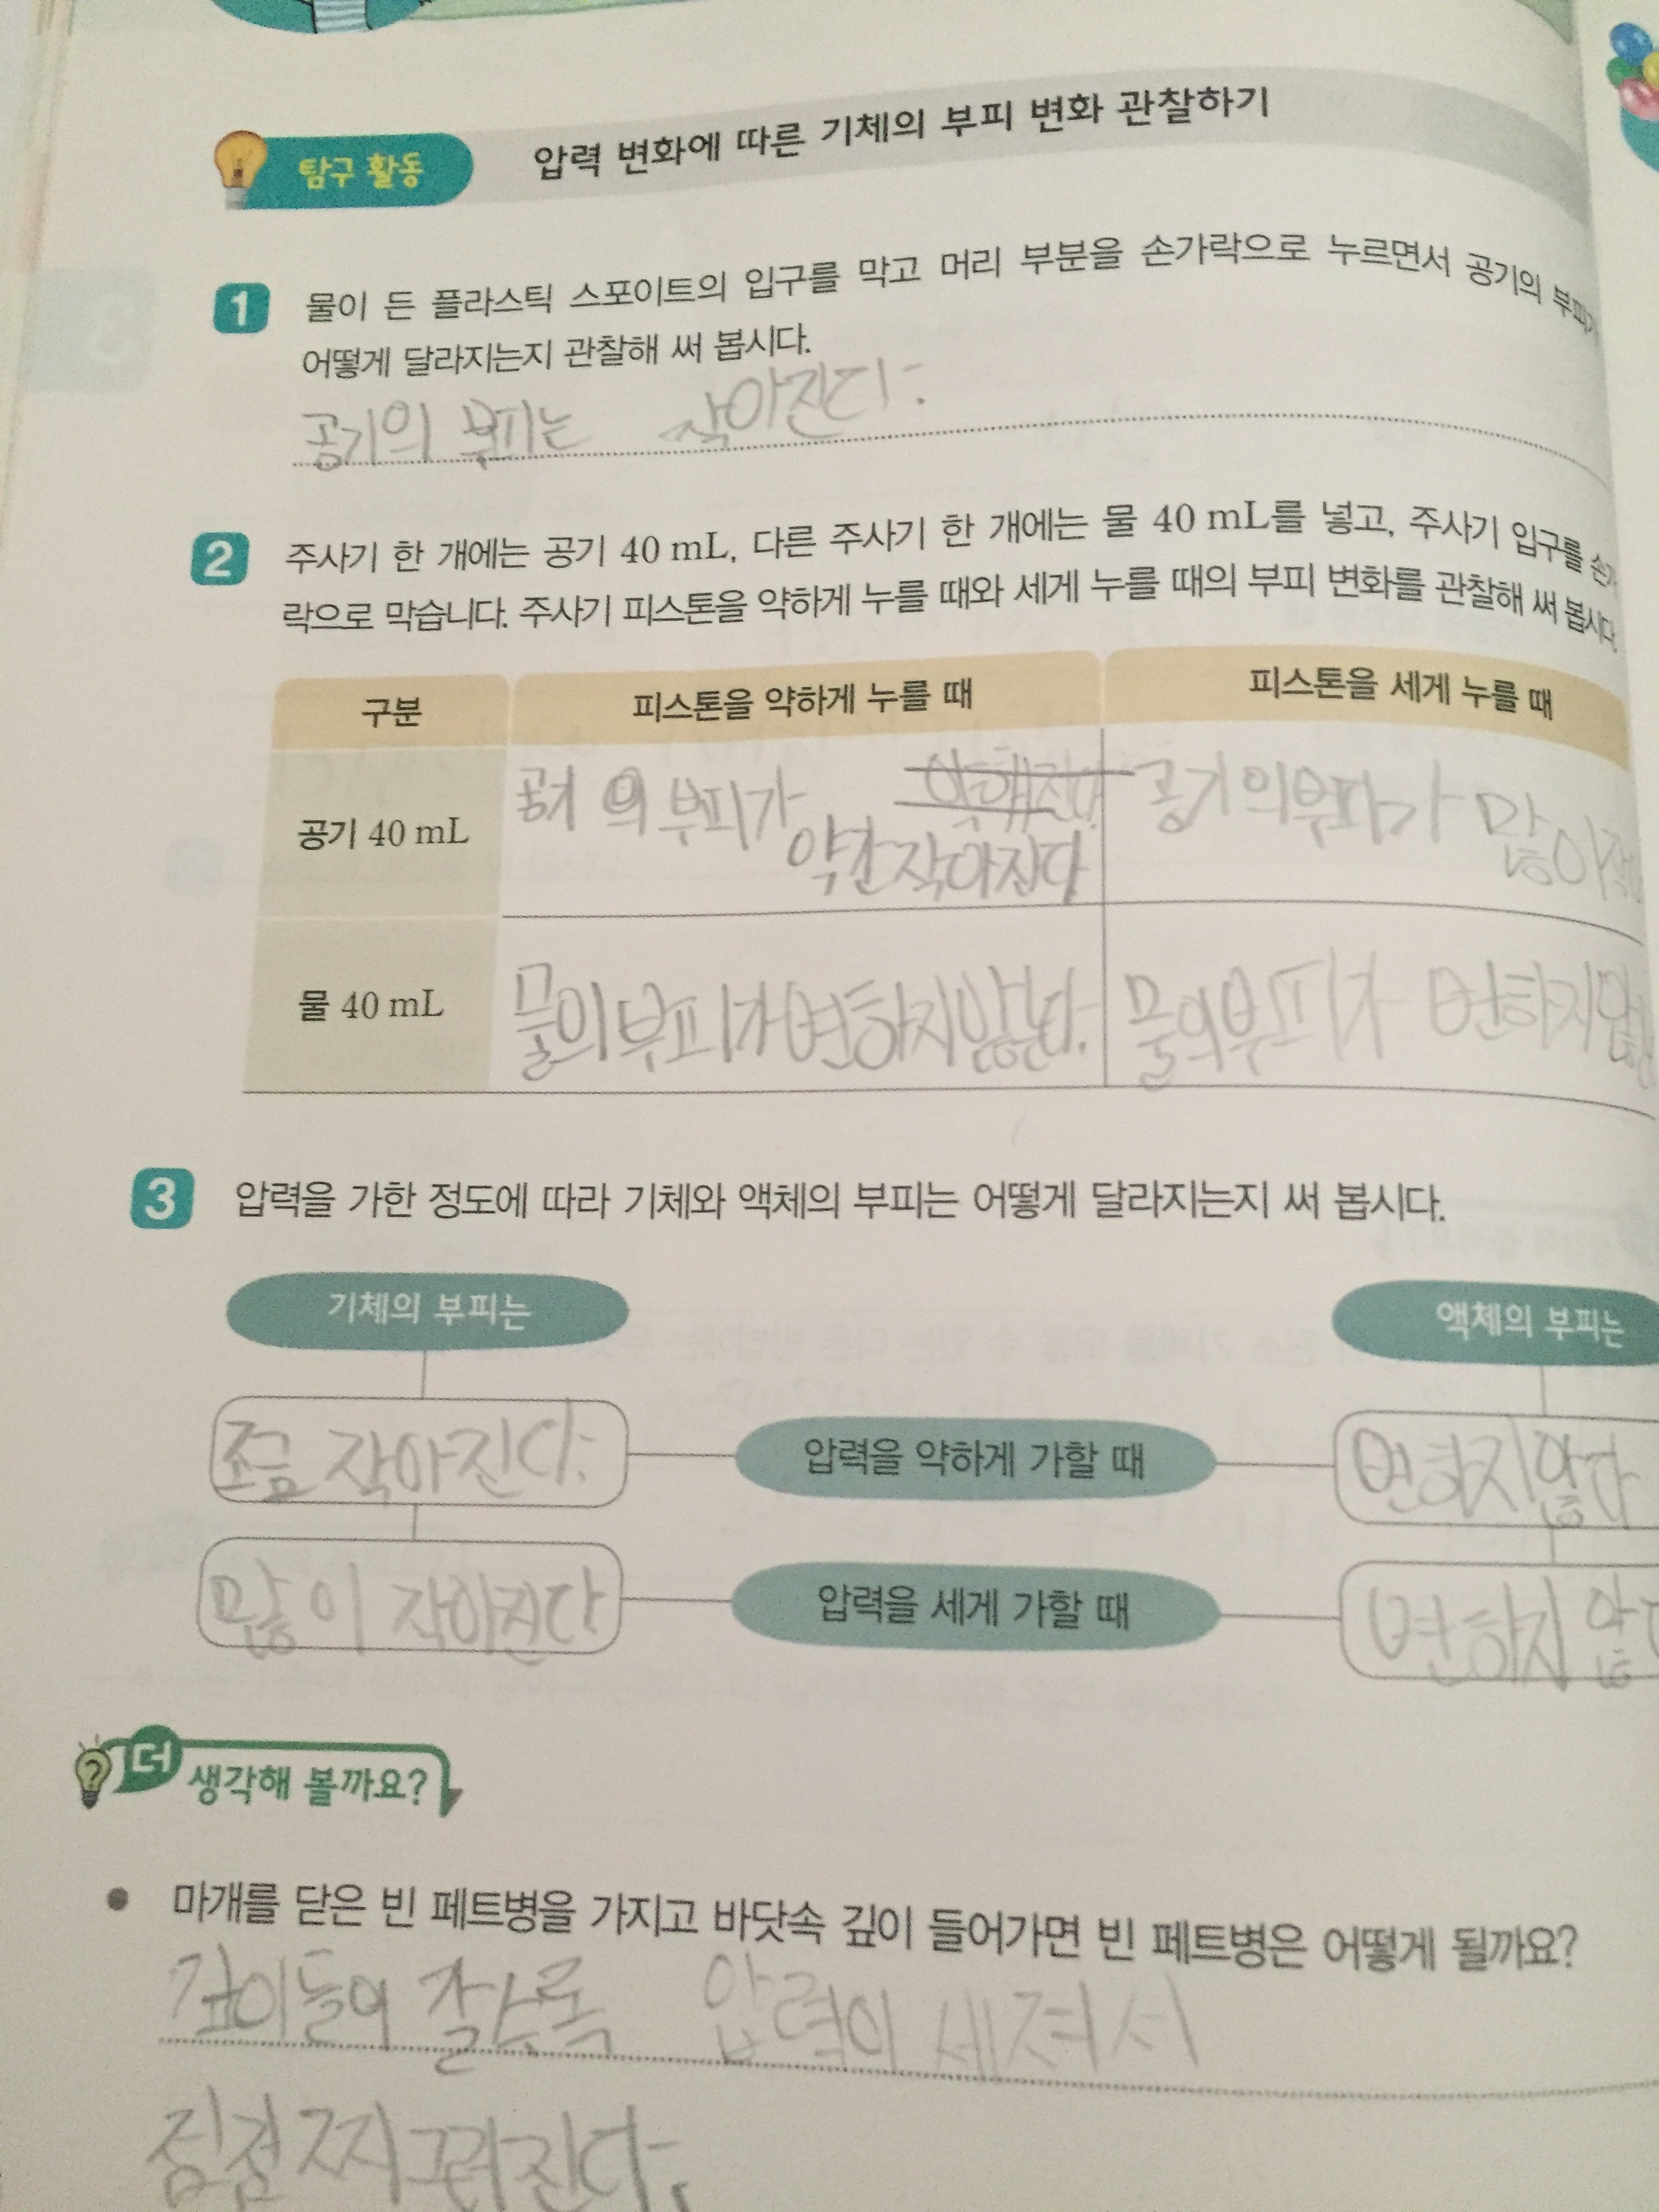 탐구 활동 압력 변화에 따른 기체의 부피 변화 관찰하기
1 물이 든 플라스틱 스포이트의 입구를 막고 머리 부분을 손가락으로 누르면서 공기의 부피가
어떻게 달라지는지 관찰해 써 봅시다.
공기의 부피는 작아진다.
2 주사기 한 개에는 공기 40 mL, 다른 주사기 한 개에는 물 40 mL를 넣고, 주사기 입구를 손가
락으로 막습니다. 주사기 피스톤을 약하게 누를 때와 세게 누를 때의 부피 변화를 관찰해 써 봅시다.
구분 피스톤을 약하게 누를 때 피스톤을 세게 누를 때
공기 40 mL 공기의 부피가 공기의 부피가 많이
약간 작아진다
물 40 mL 물의 부피가 변하지 않는다. 물의 부피가 변하지
3 압력을 가한 정도에 따라 기체와 액체의 부피는 어떻게 달라지는지 써 봅시다.
기체의 부피는 액체의 부피는
조금 작아진다. 압력을 약하게 가할 때 변하지 않다
많이 작아진다 압력을 세게 가할 때 변하지
더 생각해 볼까요?
• 마개를 닫은 빈 페트병을 가지고 바닷속 깊이 들어가면 빈 페트병은 어떻게 될까요?
깊이 들어 갈수록 압력이 세져서
점점 찌그러진다.